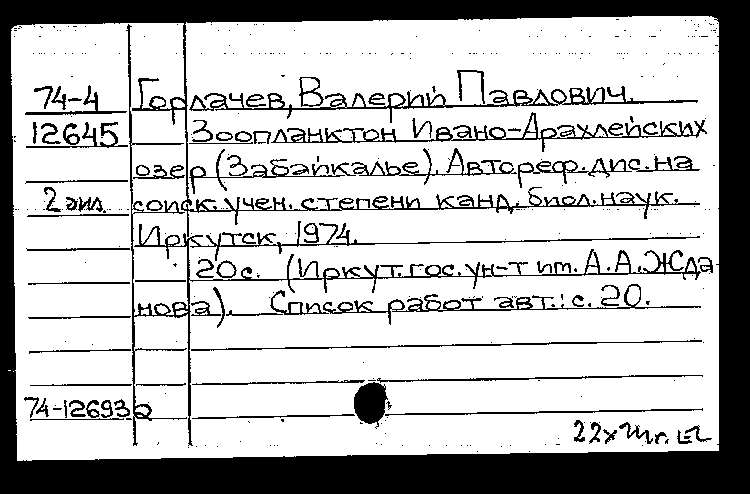 74-4 Горлачев, Валерий Павлович.
12645 Зоопланктон Ивано-Арахлейских
озер (Забайкалье). Автореф. дис. на
2 экз. соиск. учен. степени канд. биол. наук.
Иркутск, 1974.
20с. (Иркут. гос. ун-т им. А.А. Жда-
нова). Список работ авт.: с. 20.
74-12693